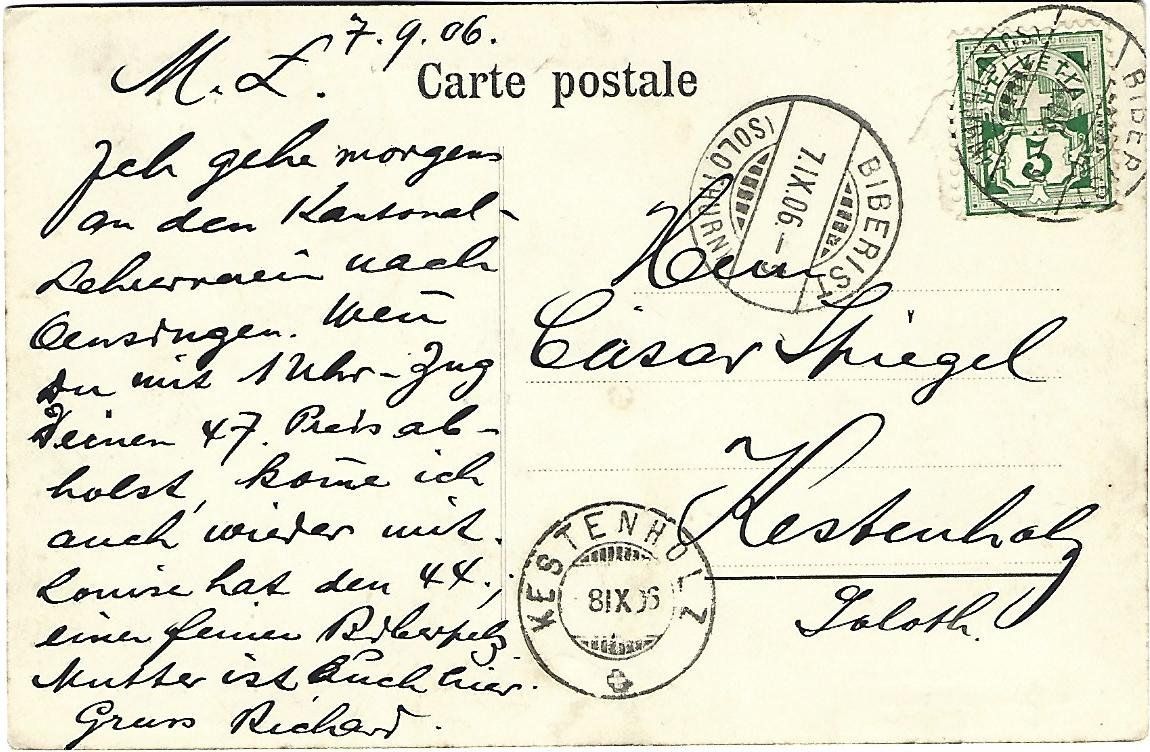 7.9.06.
M. L.
Carte postale
Ich gehe morgens
an den Kantonal-
Lehrerverein nach
Oensingen. Wen̄
Du mit 1 Uhr-Zug
Deinen 47. Preis ab-
holst, kom̄e ich
auch wieder mit.
Louise hat den 44.,
einen feinen Biberpelz
Mutter ist auch hier.
Gruss Richard.
HELVETIA
5
BIBERIST
(SOLOTHURN)
7.IX.06.–
BIBERIST
(SOLOTHURN)
Herrn
Cäsar Spiegel
Kestenholz
Soloth.
KESTENHOLZ
8IX06